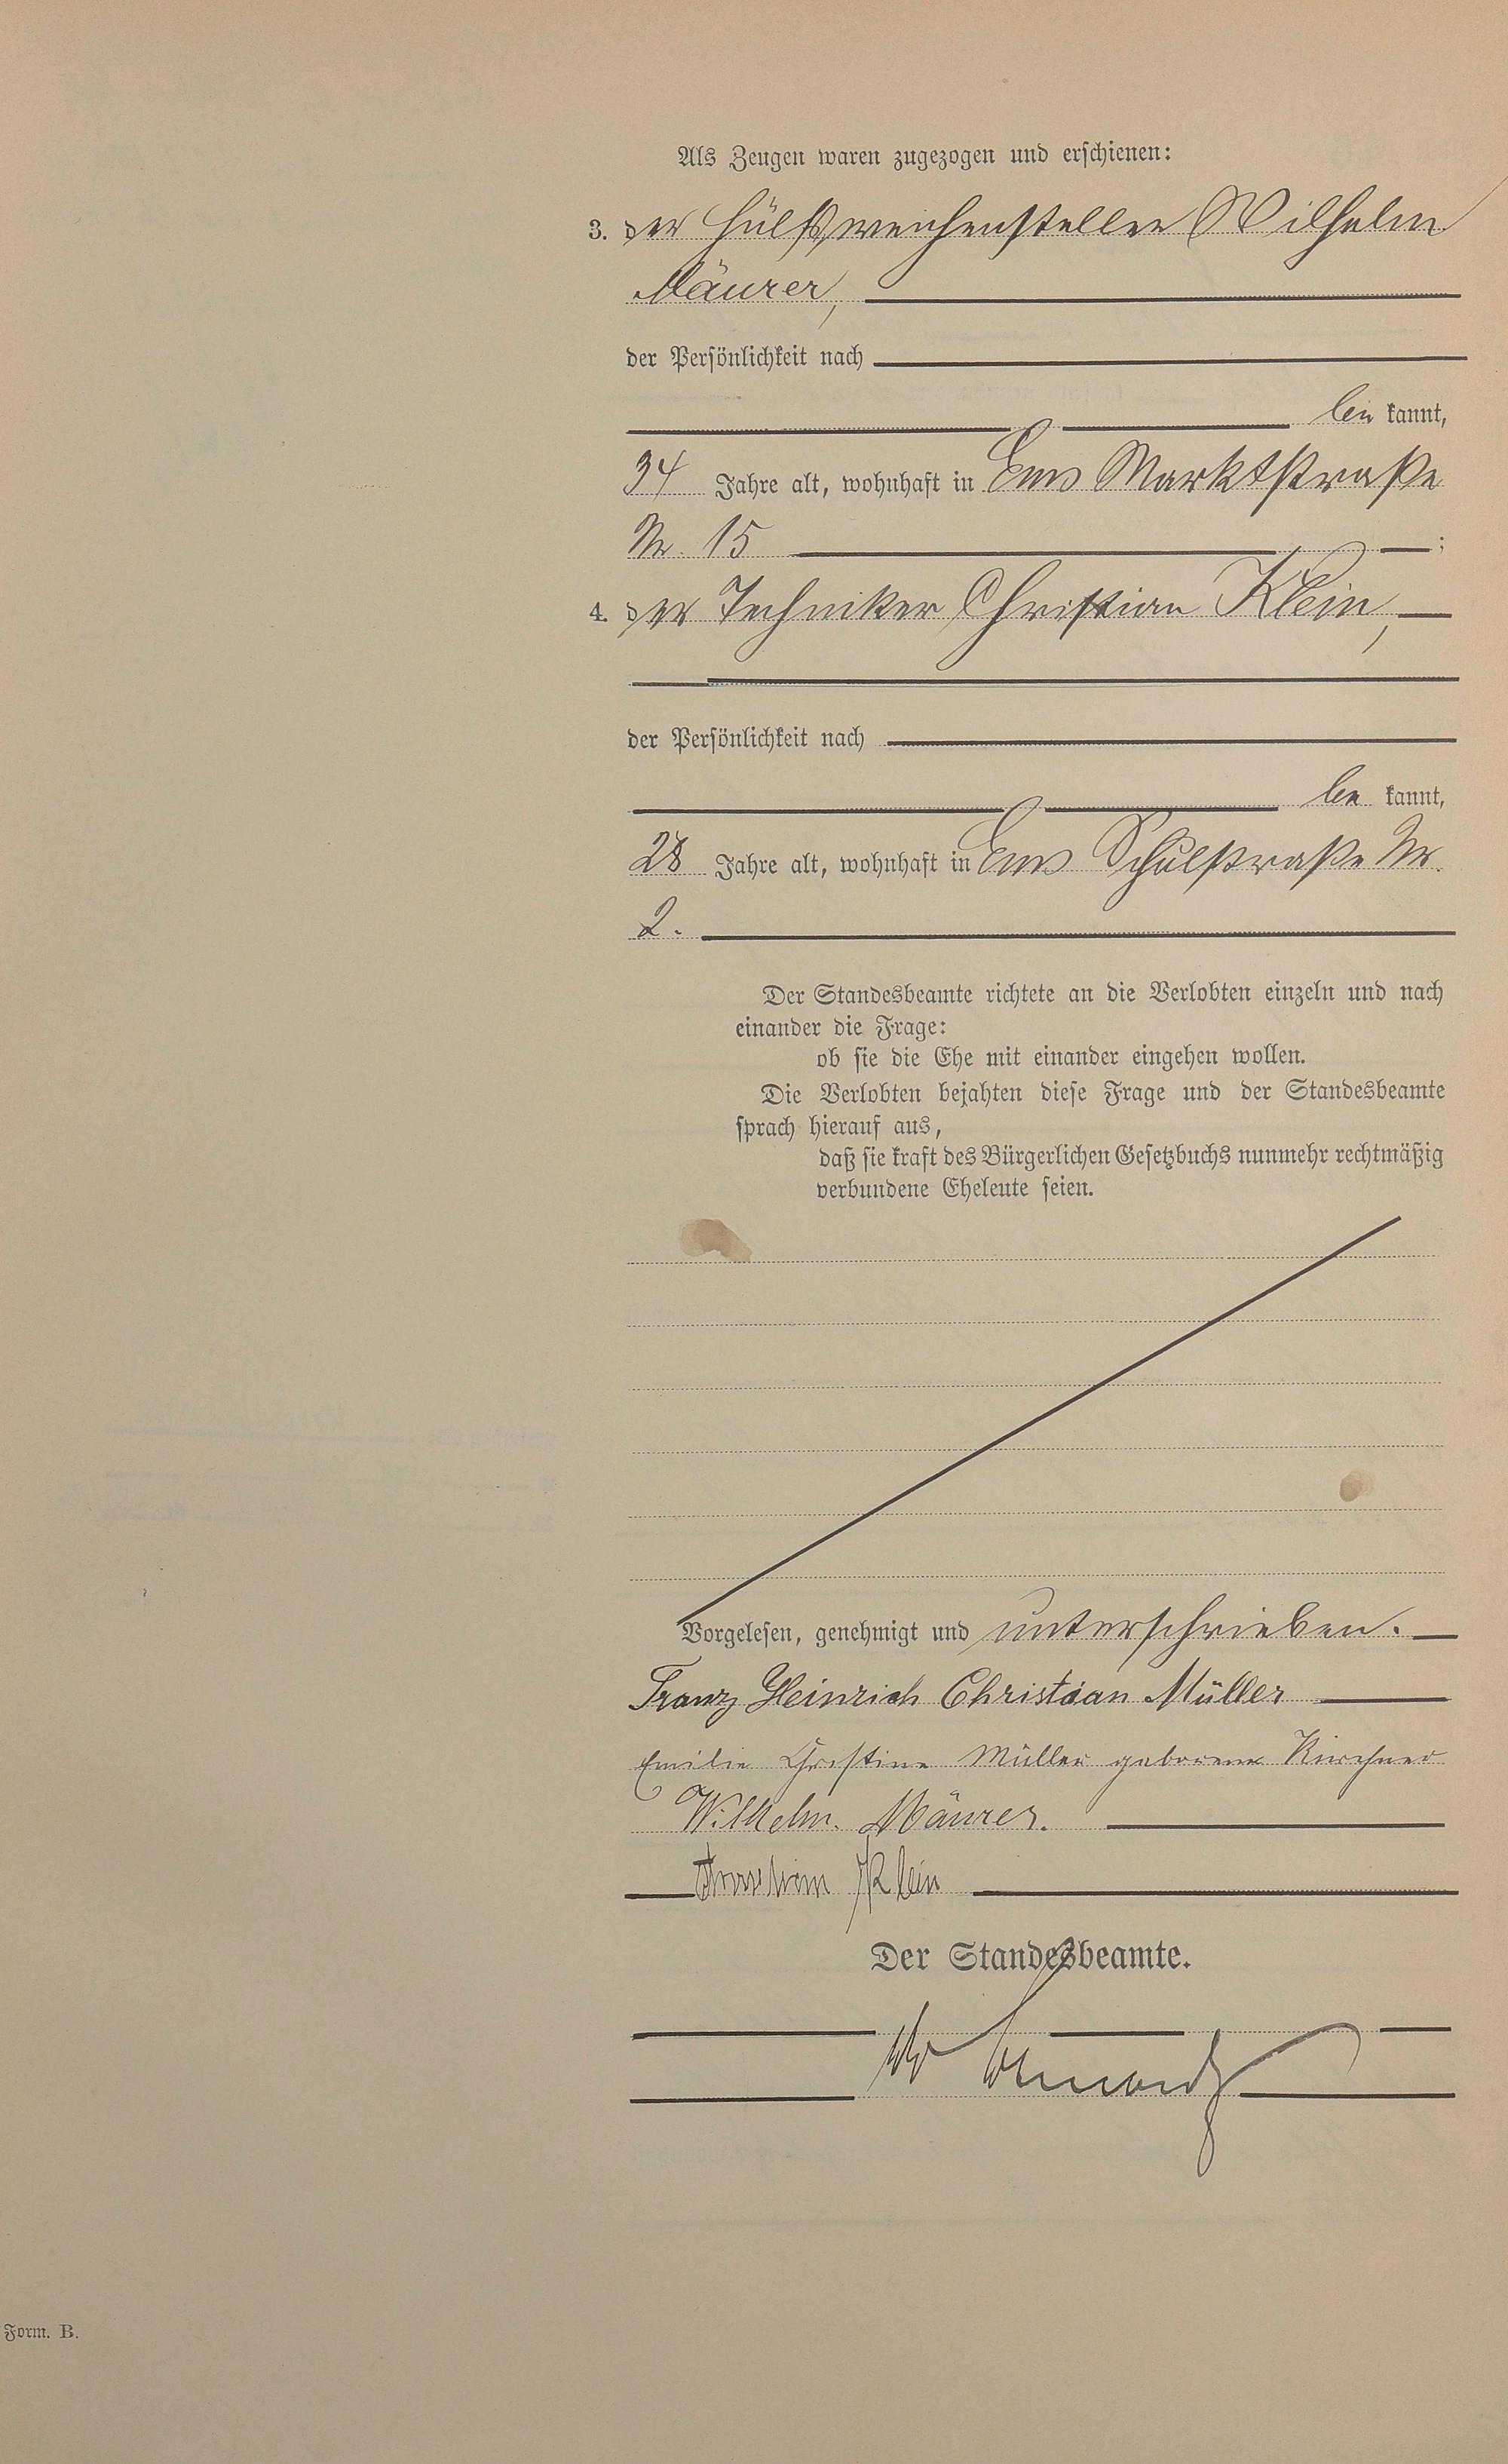 Als Zeugen waren zugezogen und erschienen:
3. der Hülfsweichensteller Wilhelm
Mäurer,
der Persönlichkeit nach
be kannt,
34 Jahre alt, wohnhaft in Ems Marktstraße
Nr. 15 ;
4. der Techniker Christian Klein,
der Persönlichkeit nach
be kannt,
28 Jahre alt, wohnhaft in Ems Schulstraße Nr.
2.
Der Standesbeamte richtete an die Verlobten einzeln und nach
einander die Frage:
ob sie die Ehe mit einander eingehen wollen.
Die Verlobten bejahten diese Frage und der Standesbeamte
sprach hierauf aus,
daß sie kraft des Bürgerlichen Gesetzbuchs nunmehr rechtmäßig
verbundene Eheleute seien.
Vorgelesen, genehmigt und unterschrieben.
Franz Heinrich Christian Müller
Emilie Christine Müller geborene Kirchner
Wilhelm. Mäurer.
Christian Klein
Der Standesbeamte.
Form. B.